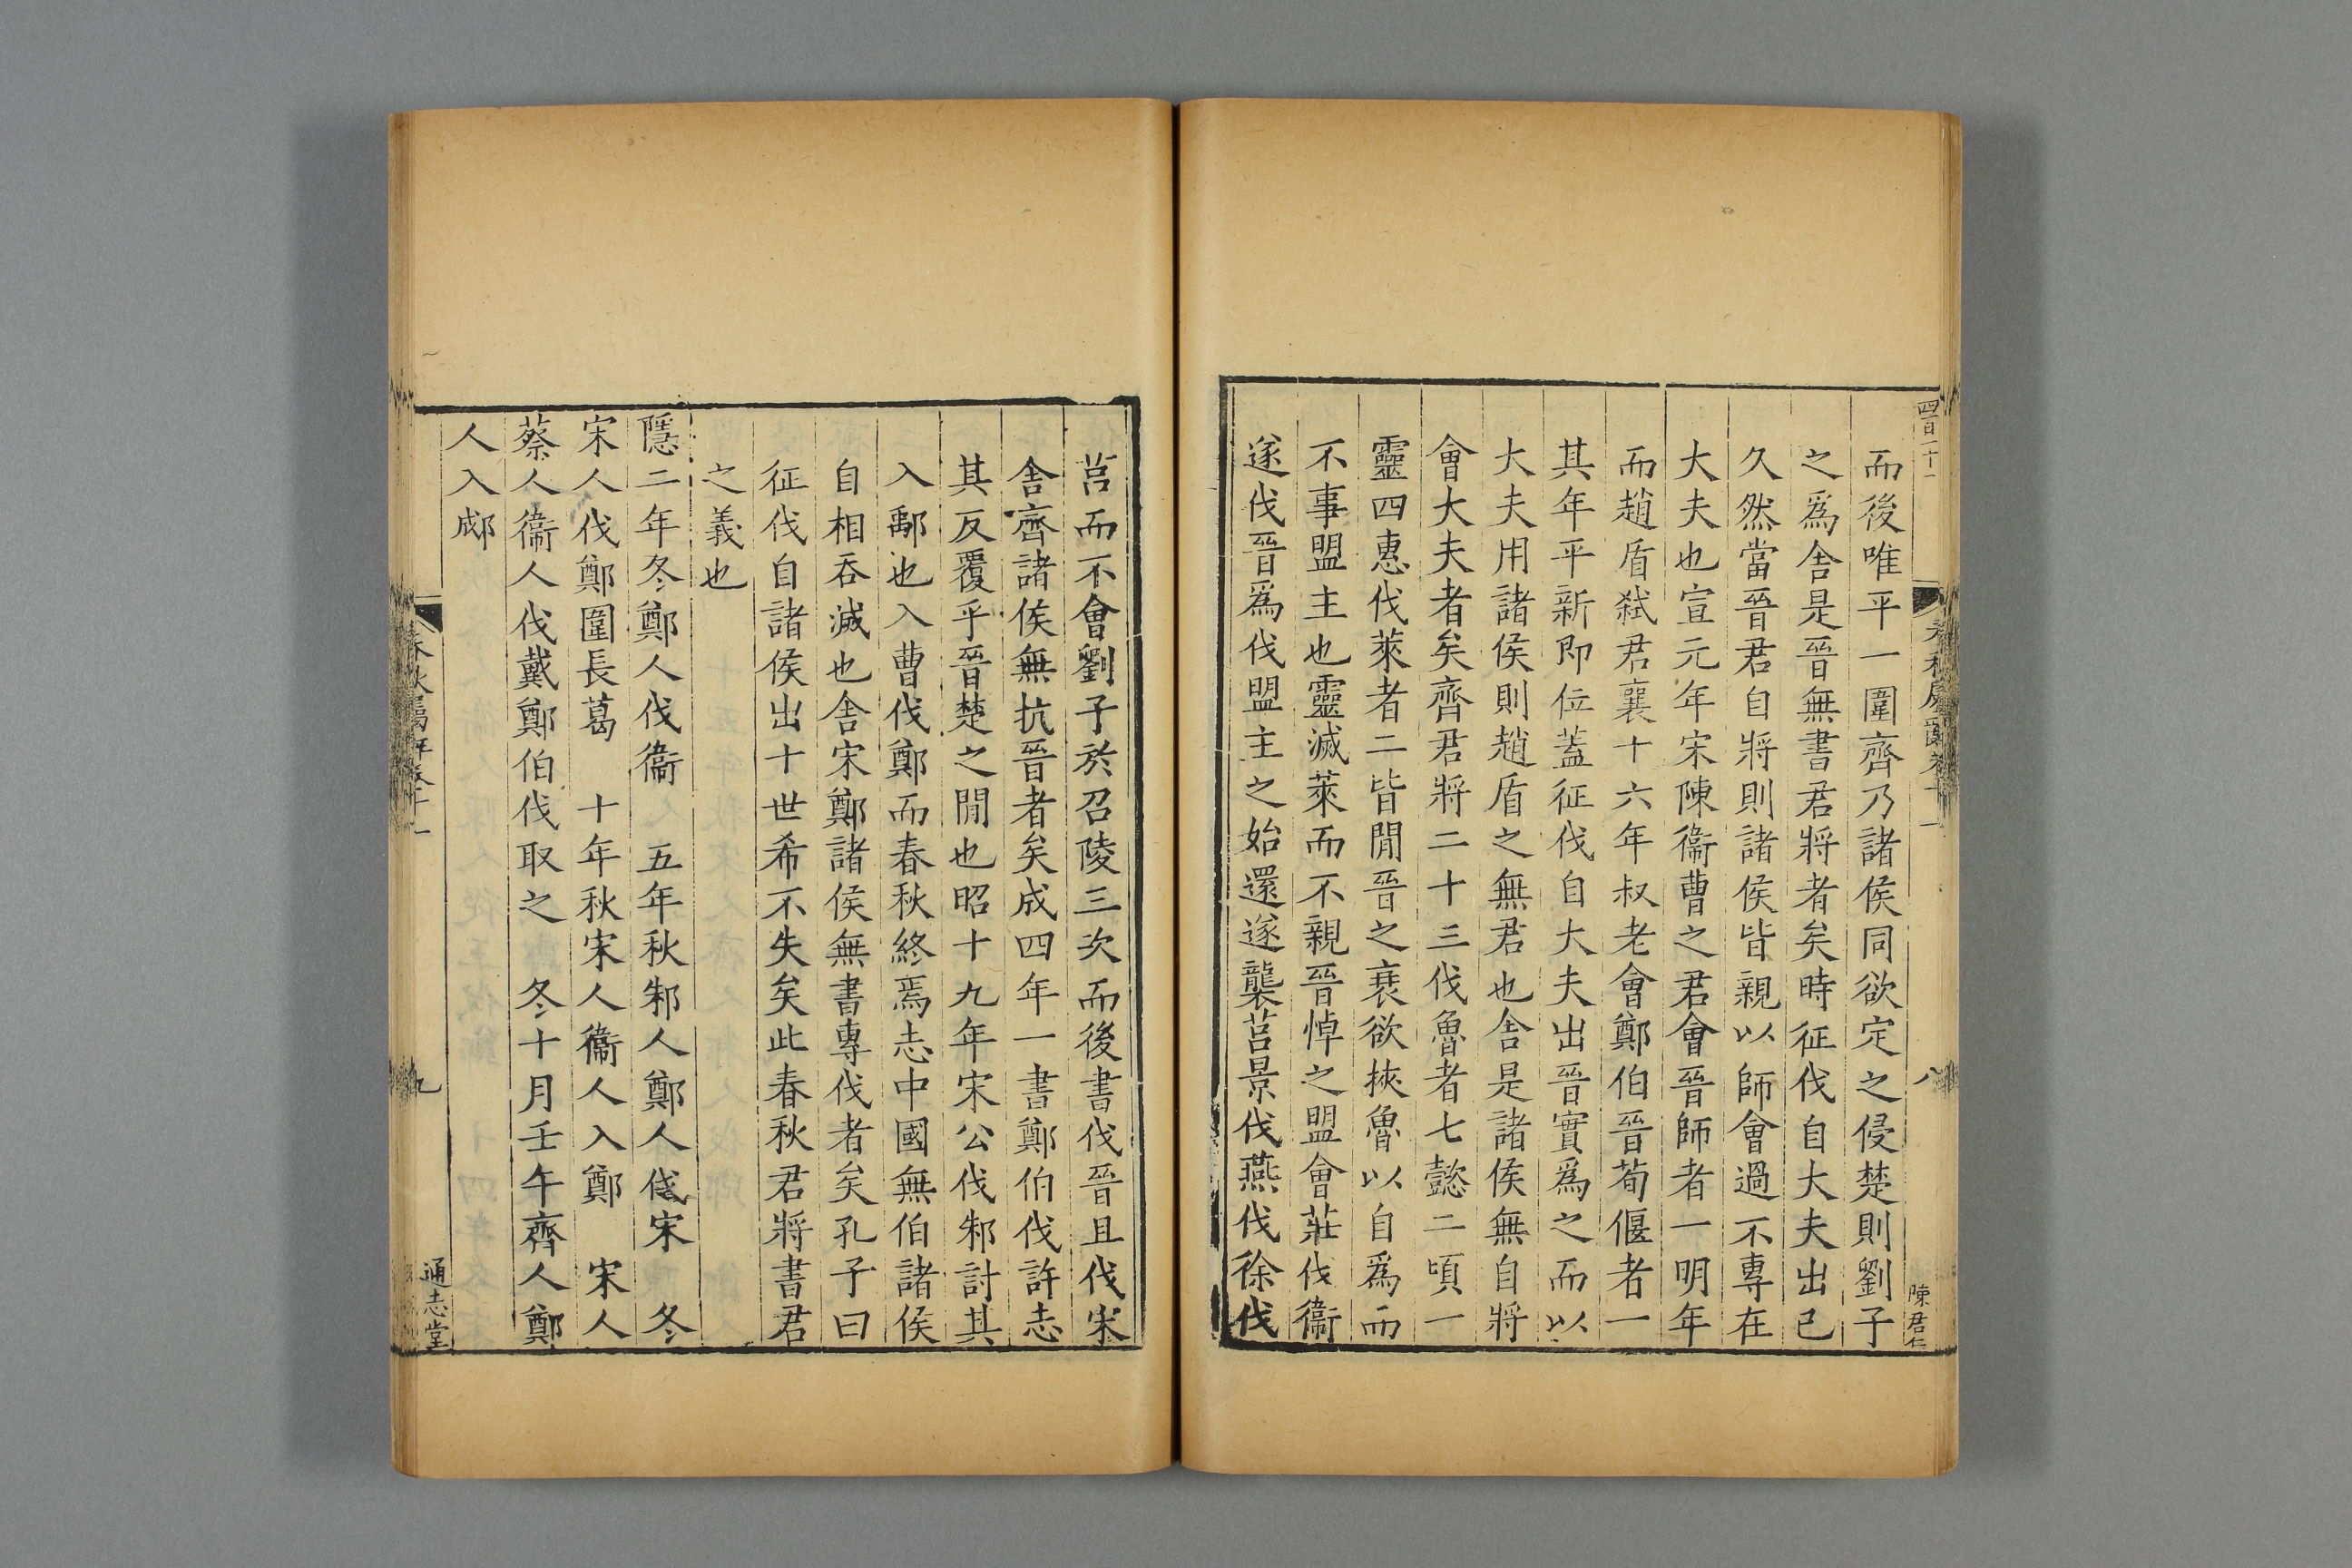 四百二十一
而後唯平一圍齊乃諸侯同欲定之侵楚則劉子
之爲舍是晉無書君將者矣時征伐自大夫出已
久然當晉君自將則諸侯皆親以師會過不專在
大夫也宣元年宋陳衞曹之君會晉師者一明年
而趙盾弒君襄十六年叔老會鄭伯晉荀偃者一
其年平新即位蓋征伐自大夫出晉實爲之而以
大夫用諸侯則趙盾之無君也舍是諸侯無自將
會大夫者矣齊君將二十三伐魯者七懿二頃一
靈四惠伐萊者二皆閒晉之衰欲挾魯以自爲而
不事盟主也靈滅萊而不親晉悼之盟會莊伐衞
遂伐晉爲伐盟主之始還遂襲莒景伐燕伐徐伐
春秋屬辭卷十一
八
陳君仁
莒而不會劉子於召陵三次而後書伐晉且伐宋
舍齊諸侯無抗晉者矣成四年一書鄭伯伐許志
其反覆乎晉楚之閒也昭十九年宋公伐邾討其
入鄅也入曹伐鄭而春秋終焉志中國無伯諸侯
自相吞滅也舍宋鄭諸侯無書專伐者矣孔子曰
征伐自諸侯出十世希不失矣此春秋君將書君
之義也
隱二年冬鄭人伐衞 五年秋邾人鄭人伐宋 冬
宋人伐鄭圍長葛 十年秋宋人衞人入鄭 宋人
蔡人衞人伐戴鄭伯伐取之 冬十月壬午齊人鄭
人入郕
春秋屬辭卷十一
九
通志堂